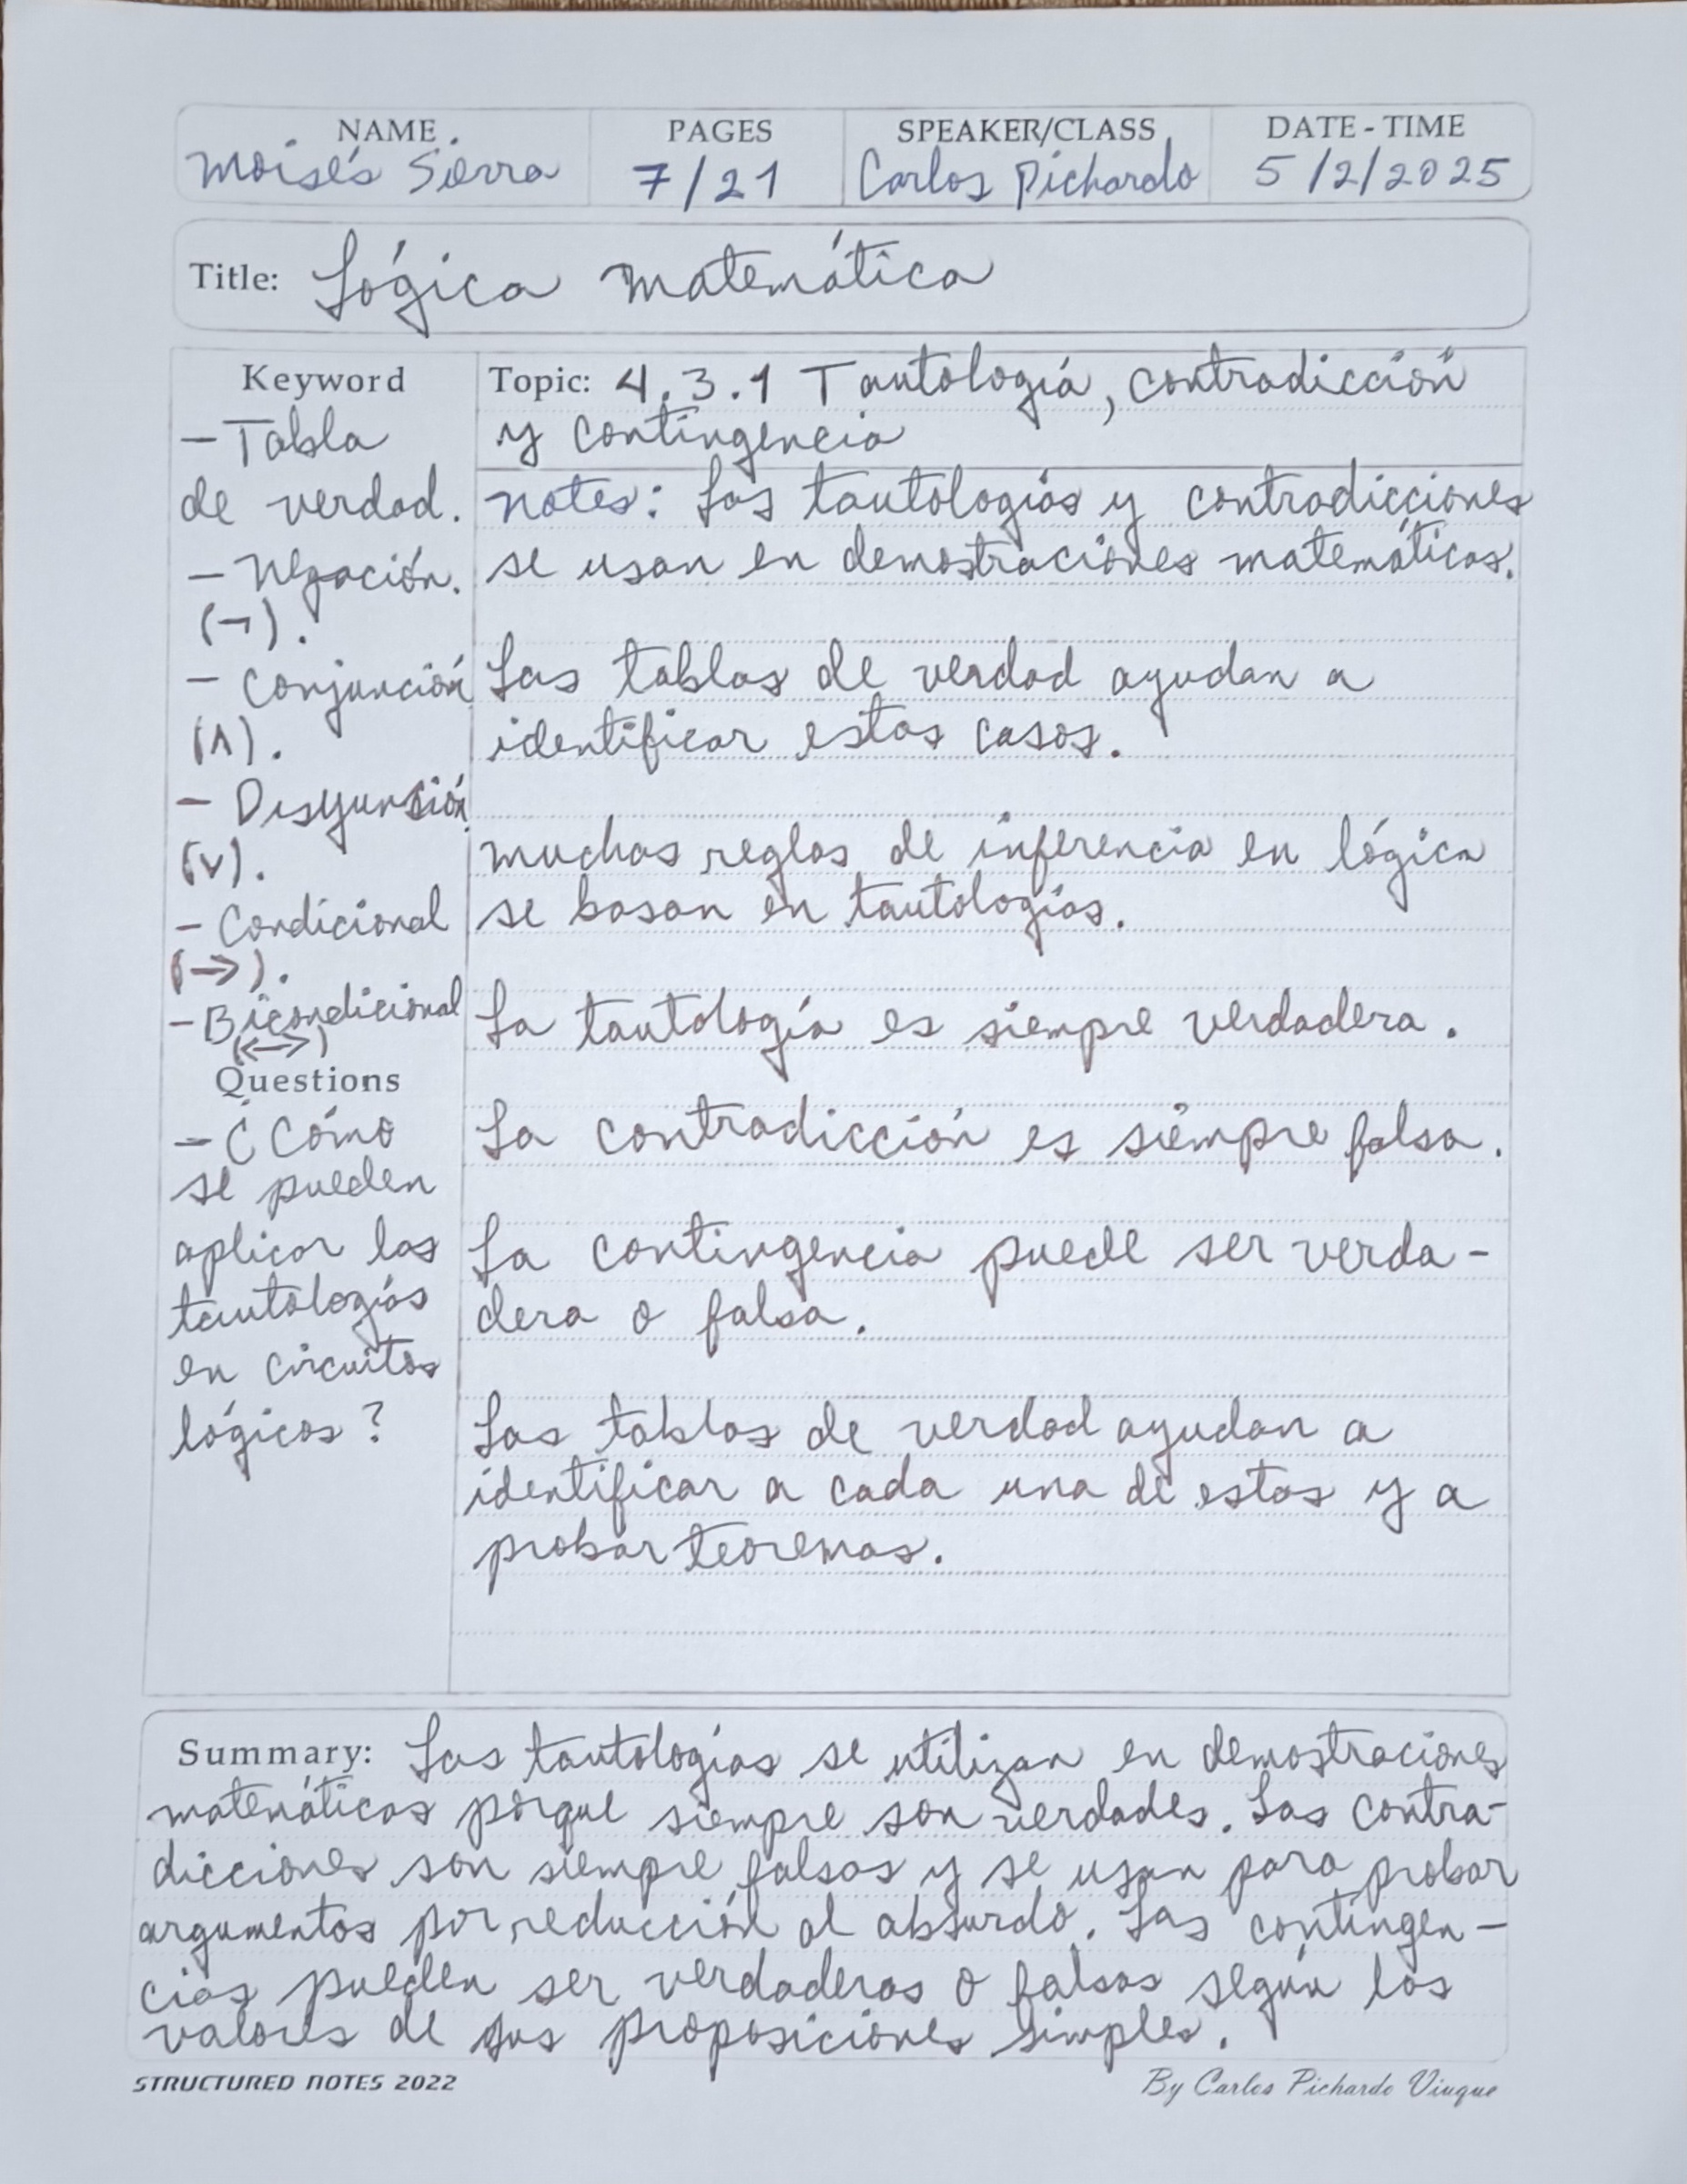 NAME PAGES SPEAKER/CLASS DATE - TIME
Moisés Sierra 7/21 Carlos Pichardo 5/2/2025
Title: Lógica matemática
Keyword
- Tabla
de verdad.
- Negación.
(¬).
- Conjunción
(∧).
- Disyunción
(∨).
- Condicional
(→).
- Bicondicional
(↔)
Questions
- ¿Cómo
se pueden
aplicar las
tautologías
en circuitos
lógicos?
Topic: 4.3.1 Tautología, contradicción
y contingencia
notes: Las tautologías y contradicciones
se usan en demostraciones matemáticas.
Las tablas de verdad ayudan a
identificar estos casos.
muchas reglas de inferencia en lógica
se basan en tautologías.
La tautología es siempre verdadera.
La contradicción es siempre falsa.
La contingencia puede ser verda-
dera o falsa.
Las tablas de verdad ayudan a
identificar a cada una de estas y a
probar teoremas.
Summary: Las tautologías se utilizan en demostraciones
matemáticas porque siempre son verdades. Las contra-
dicciones son siempre falsas y se usan para probar
argumentos por reducción al absurdo. Las contingen-
cias pueden ser verdaderas o falsas según los
valores de sus proposiciones simples.
STRUCTURED NOTES 2022 By Carlos Pichardo Viuque